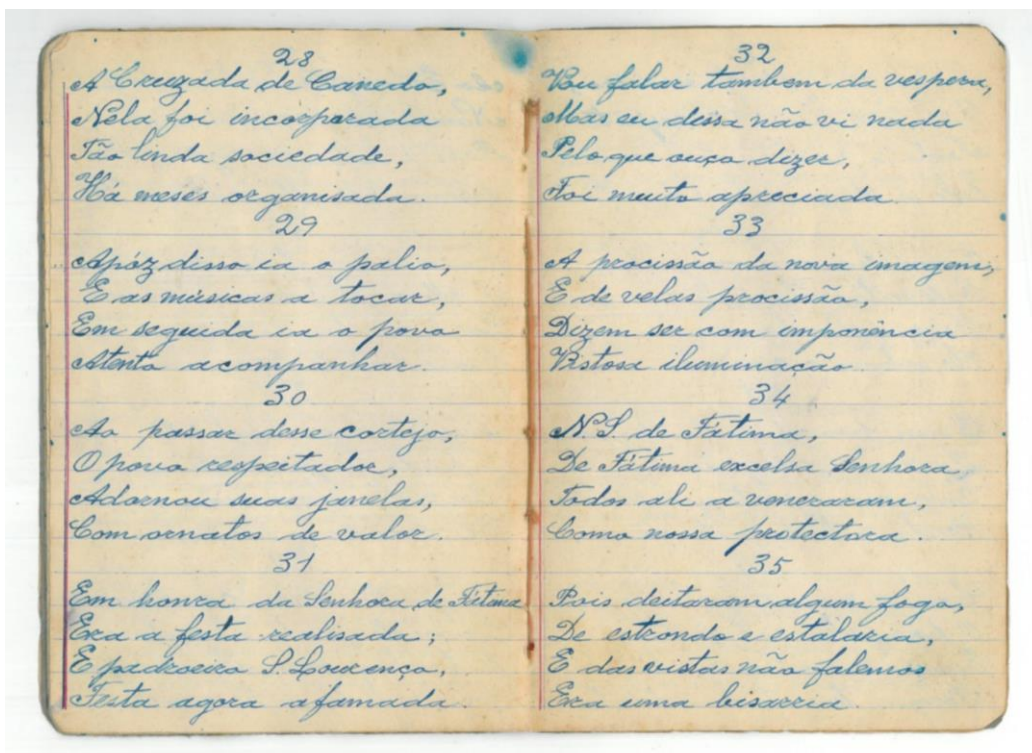 28
A Cruzada de Canedo,
Nela foi incorporada
Tão linda sociedade,
Há meses organisada.
29
Apóz disso ia o palio,
E as músicas a tocar,
Em seguida ia o povo
Atento acompanhar.
30
Ao passar desse cortejo,
O povo respeitador,
Adornou suas janelas,
Com ornatos de valor.
31
Em honra da Senhora de Fátima
Era a festa realisada;
E padroeiro S. Lourenço,
Festa agora afamada.
32
Vou falar tambem da vespera,
Mas eu dessa não vi nada
Pelo que ouço dizer,
Foi muito apreciada.
33
A procissão da nova imagem,
E de velas procissão,
Dizem ser com imponência
Vistosa iluminação.
34
N. S. de Fátima,
De Fátima excelsa Senhora,
Todos ali a veneraram,
Como nossa protectora.
35
Pois deitaram algum fogo,
De estrondo e estalaria,
E das vistas não falemos
Era uma bisarria.